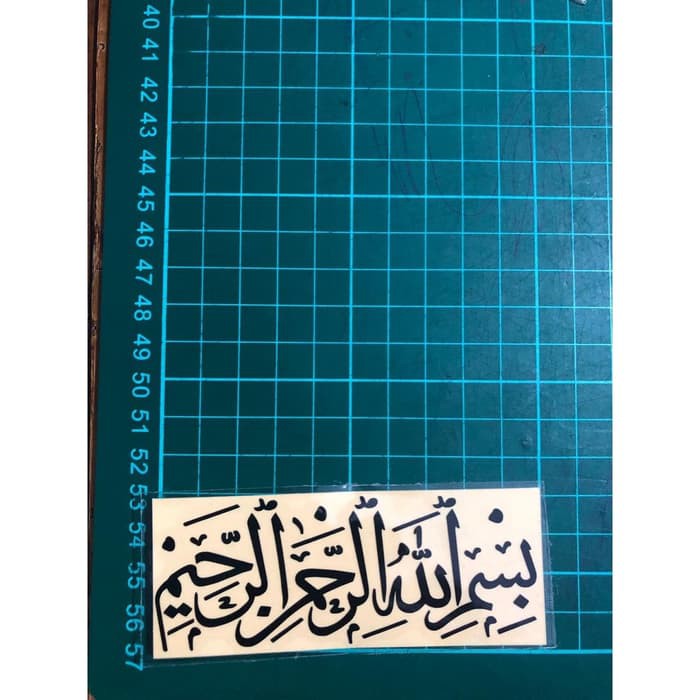 40
41
42
43
44
45
46
47
48
49
50
51
52
53
54
55
56
57
بِسْمِ ٱللَّهِ ٱلرَّحْمَٰنِ ٱلرَّحِيمِ